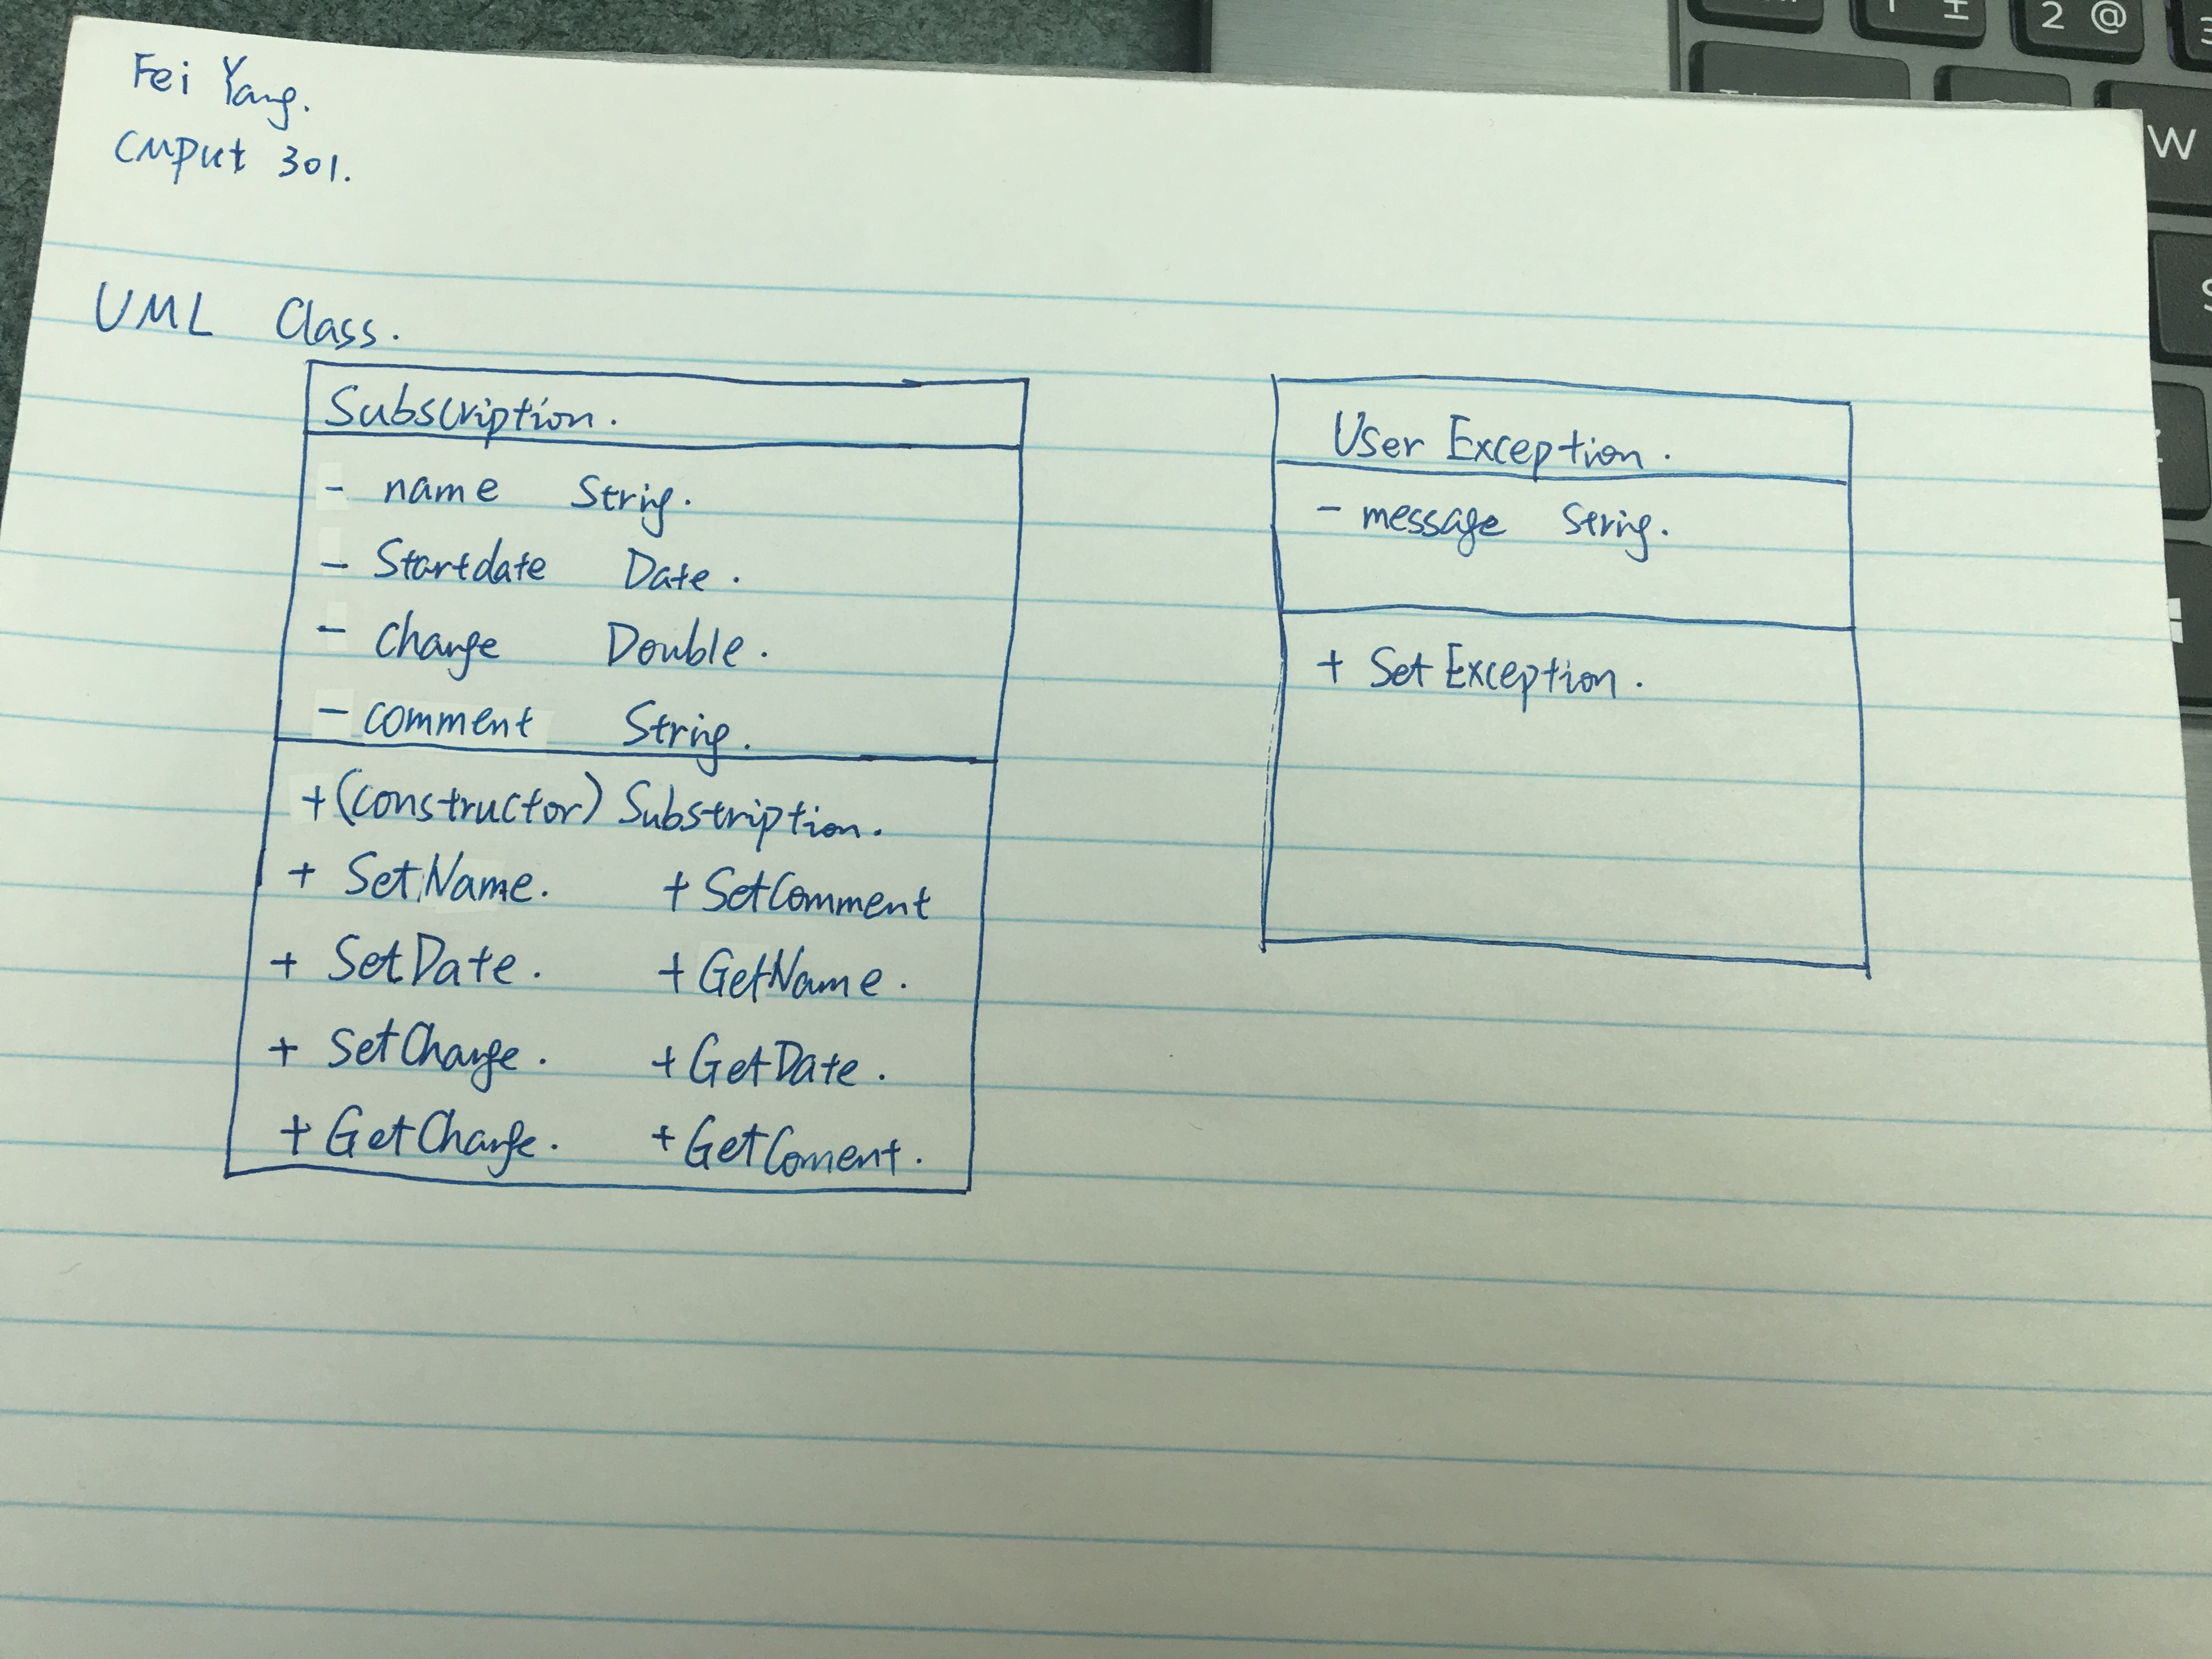 Fei Yang.
CMPUT 301.
UML Class.
Subscription.
- name String.
- Startdate Date.
- Charge Double.
- comment String.
+ (Constructor) Subscription.
+ SetName. + SetComment
+ SetDate. + GetName.
+ SetCharge. + GetDate.
+ GetCharge. + GetComent.
User Exception.
- message String.
+ Set Exception.
1
2 @
W
3